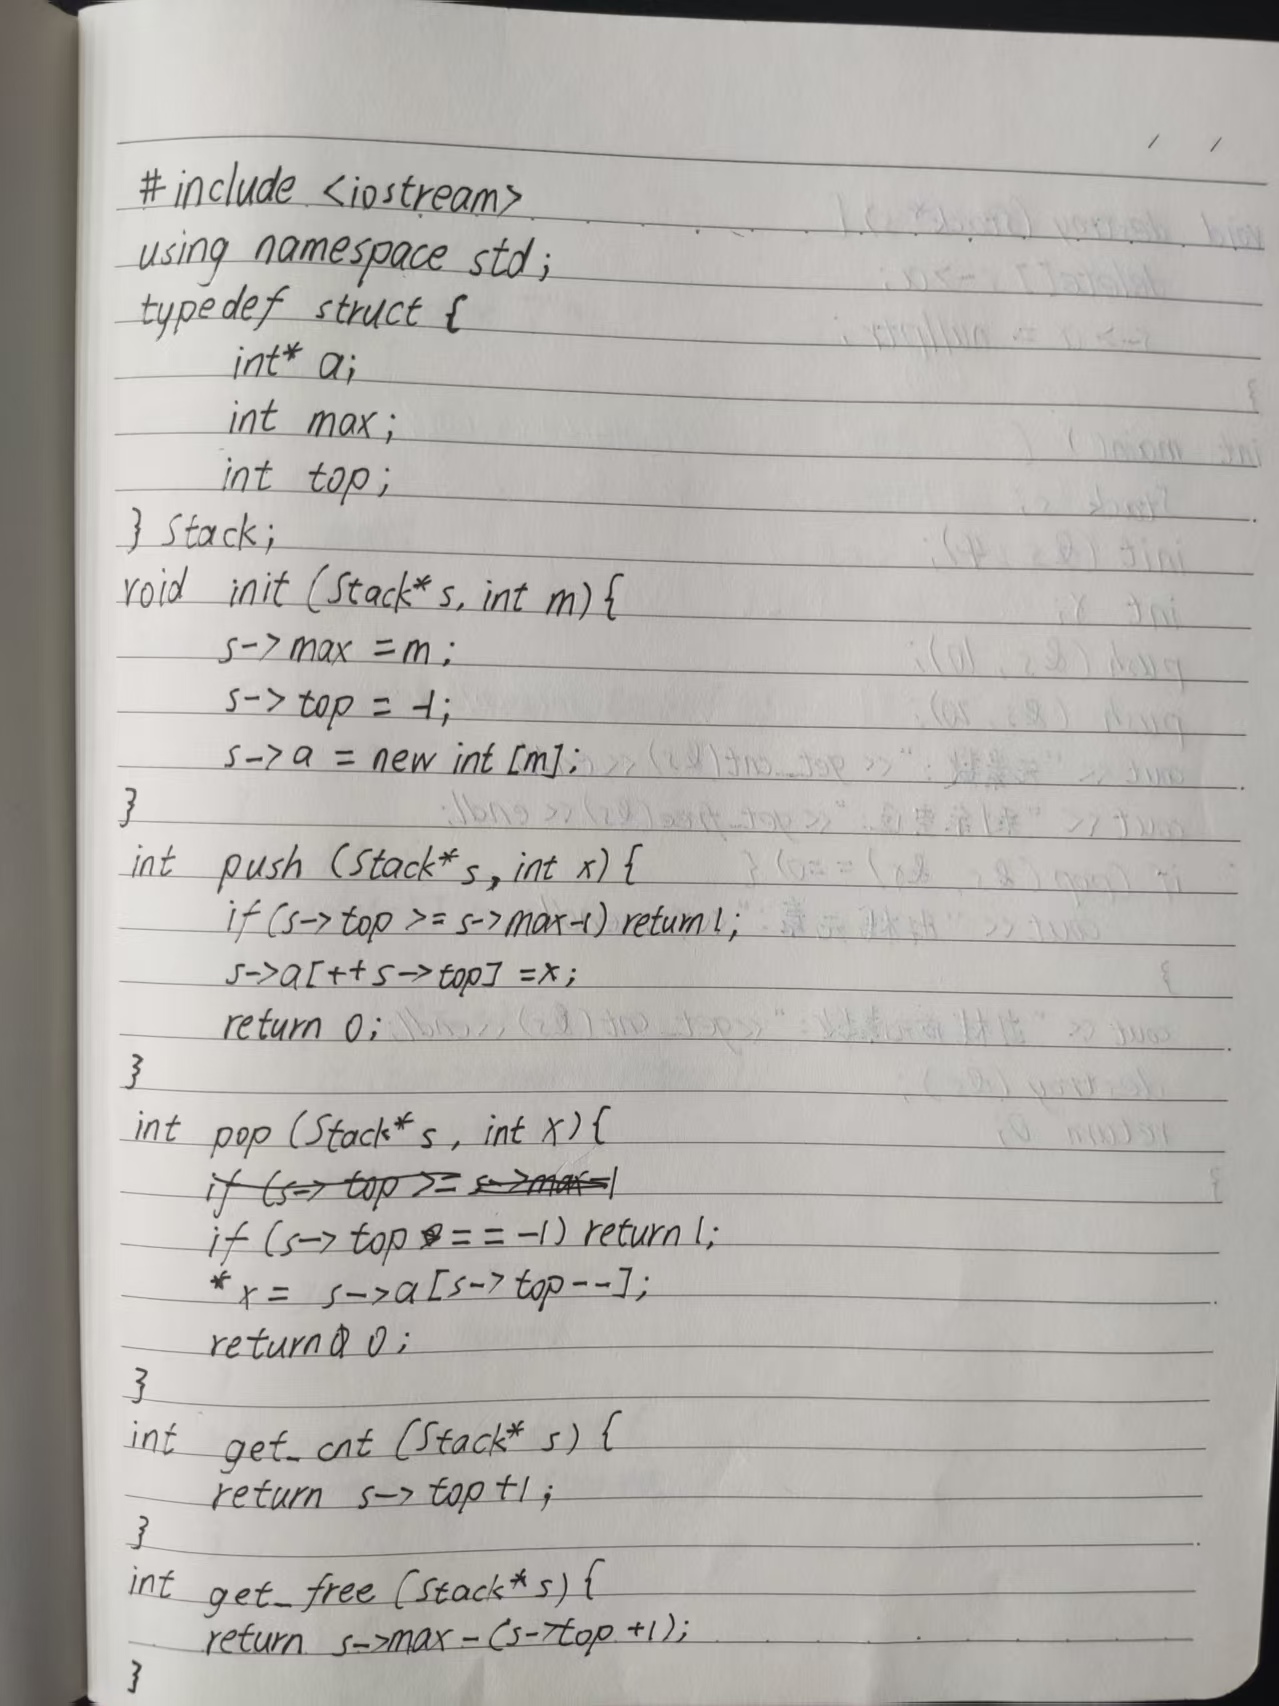 #include <iostream>
using namespace std;
typedef struct {
int* a;
int max;
int top;
} Stack;
void init (Stack* s, int m){
s->max =m;
s->top = -1;
s->a = new int [m];
}
int push (Stack* s, int x){
if(s->top >= s->max-1) return 1;
s->a[++s->top] =x;
return 0;
}
int pop (Stack* s, int x){
if (s->top >= s->max-1
if (s->top == -1) return 1;
*x = s->a[s->top--];
return 0;
}
int get_cnt (Stack* s) {
return s->top+1;
}
int get_free (Stack* s){
return s->max-(s->top+1);
}